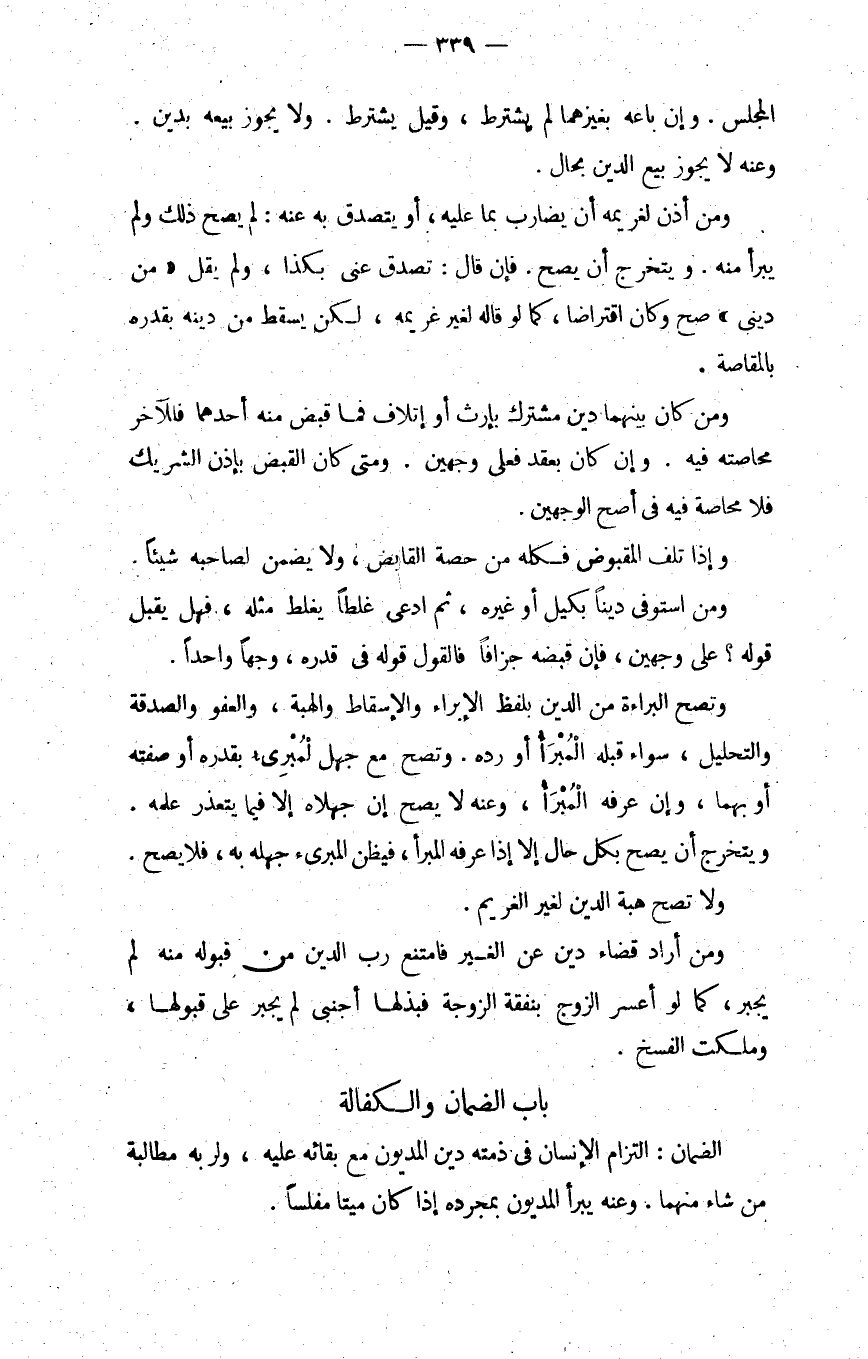 — ٣٣٩ —
المجلس . وإن باعه بغيرهما لم يشترط ، وقيل يشترط . ولا يجوز بيعه بدين .
وعنه لا يجوز بيع الدين بحال .
ومن أذن لغريمه أن يضارب بما عليه ، أو يتصدق به عنه : لم يصح ذلك ولم
يبرأ منه . ويتخرج أن يصح . فإن قال : تصدق عنى بكذا ، ولم يقل « من
دينى » صح وكان اقتراضا ، كما لو قاله لغير غريمه ، لكن يسقط من دينه بقدره
بالمقاصة .
ومن كان بينهما دين مشترك بإرث أو إتلاف فما قبض منه أحدهما فللآخر
محاصته فيه . وإن كان بعقد فعلى وجهين . ومتى كان القبض بإذن الشريك
فلا محاصة فيه فى أصح الوجهين .
وإذا تلف المقبوض فكله من حصة القابض ، ولا يضمن لصاحبه شيئاً .
ومن استوفى ديناً بكيل أو غيره ، ثم ادعى غلطاً يغلط مثله ، فهل يقبل
قوله ؟ على وجهين ، فإن قبضه جزافاً فالقول قوله فى قدره ، وجهاً واحداً .
وتصح البراءة من الدين بلفظ الإبراء والإسقاط والهبة ، والعفو والصدقة
والتحليل ، سواء قبله الْمُبْرَأُ أو رده . وتصح مع جهل لْمُبْرِىء بقدره أو صفته
أو بهما ، وإن عرفه الْمُبْرَأُ ، وعنه لا يصح إن جهلاه إلا فيما يتعذر علمه .
ويتخرج أن يصح بكل حال إلا إذا عرفه المبرأ ، فيظن المبرىء جهله به ، فلا يصح .
ولا تصح هبة الدين لغير الغريم .
ومن أراد قضاء دين عن الغير فامتنع رب الدين من قبوله منه لم
يجبر ، كما لو أعسر الزوج بنفقة الزوجة فبذلها أجنبى لم يجبر على قبولها ،
وملكت الفسخ .
باب الضمان والكفالة
الضمان : التزام الإنسان فى ذمته دين المديون مع بقائه عليه ، ولربه مطالبة
من شاء منهما . وعنه يبرأ المديون بمجرده إذا كان ميتا مفلساً .